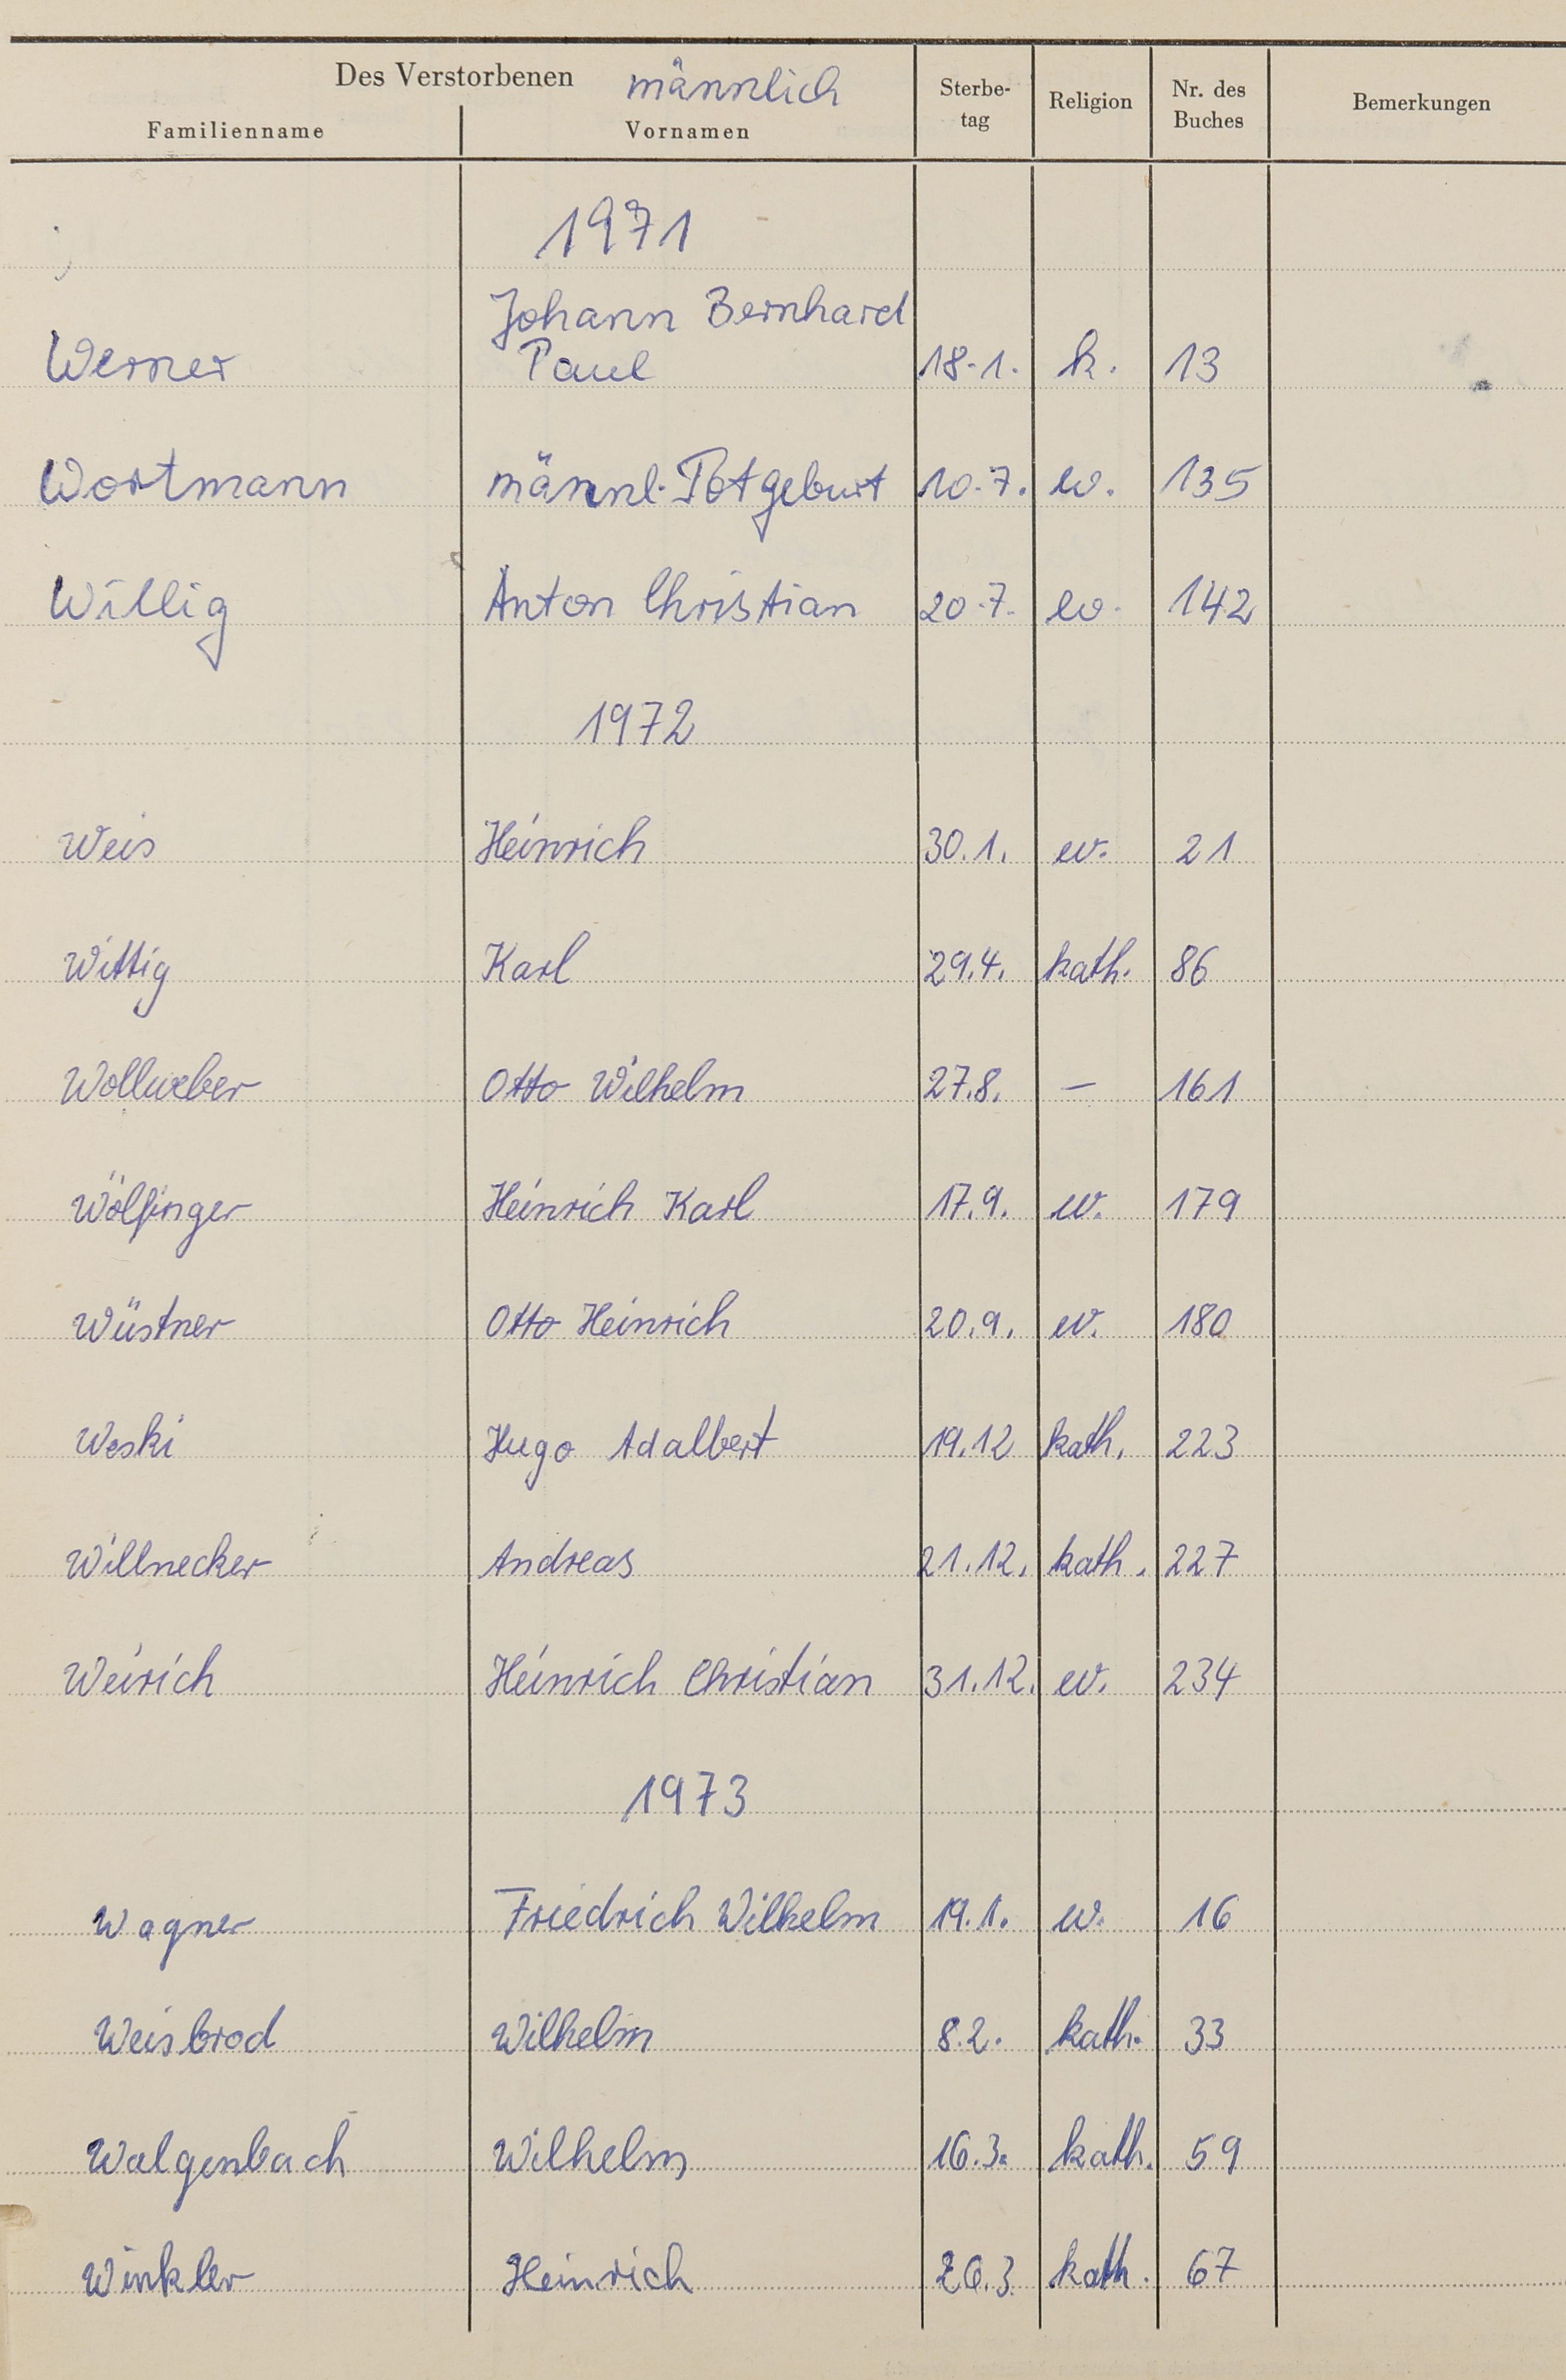 Des Verstorbenen männlich
Familienname Vornamen Sterbe-tag Religion Nr. des Buches Bemerkungen
1971
Johann Bernhard
Werner Paul 18.1. k. 13
Wortmann männl. Totgeburt 10.7. ev. 135
Willig Anton Christian 20.7. ev. 142
1972
Weis Heinrich 30.1. ev. 21
Wittig Karl 29.4. kath. 86
Wollweber Otto Wilhelm 27.8. – 161
Wölfinger Heinrich Karl 17.9. ev. 179
Wüstner Otto Heinrich 20.9. ev. 180
Weski Hugo Adalbert 19.12 kath. 223
Willnecker Andreas 21.12. kath. 227
Weirich Heinrich Christian 31.12. ev. 234
1973
Wagner Friedrich Wilhelm 19.1. ev. 16
Weisbrod Wilhelm 8.2. kath. 33
Walgenbach Wilhelm 16.3. kath. 59
Winkler Heinrich 26.3. kath. 67